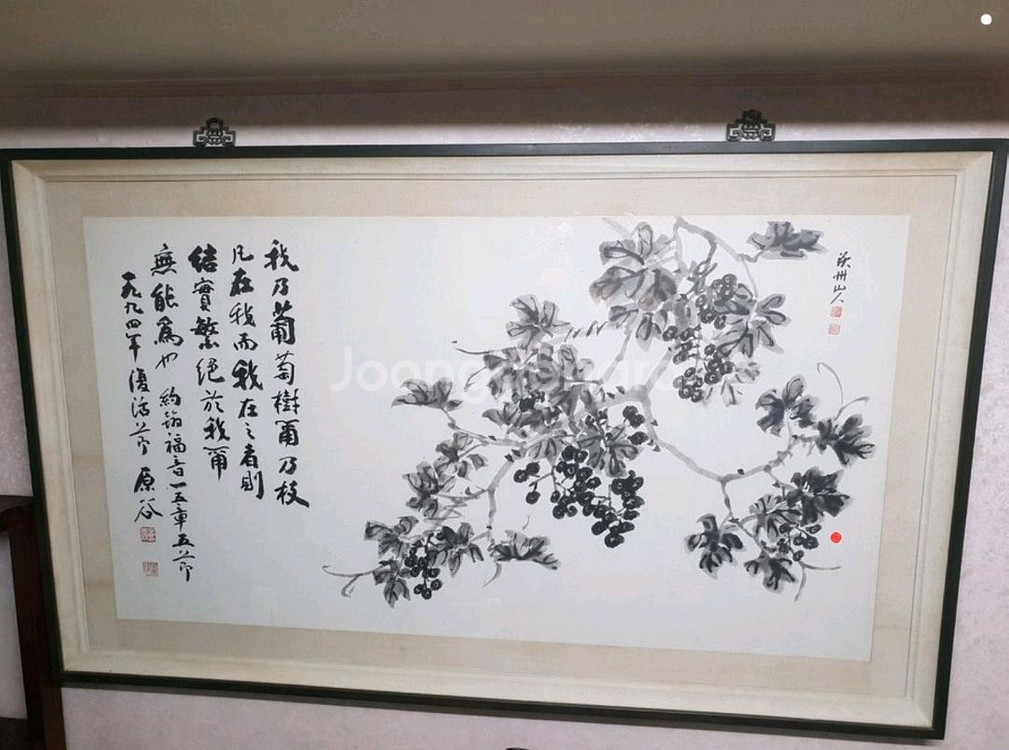 州山人
我乃葡萄樹爾乃枝
凡在我而我在之者則
結實繁絕於我爾
無能爲也 約翰福音一五章五节
一九九四年 復活节 原谷
Joonggonara